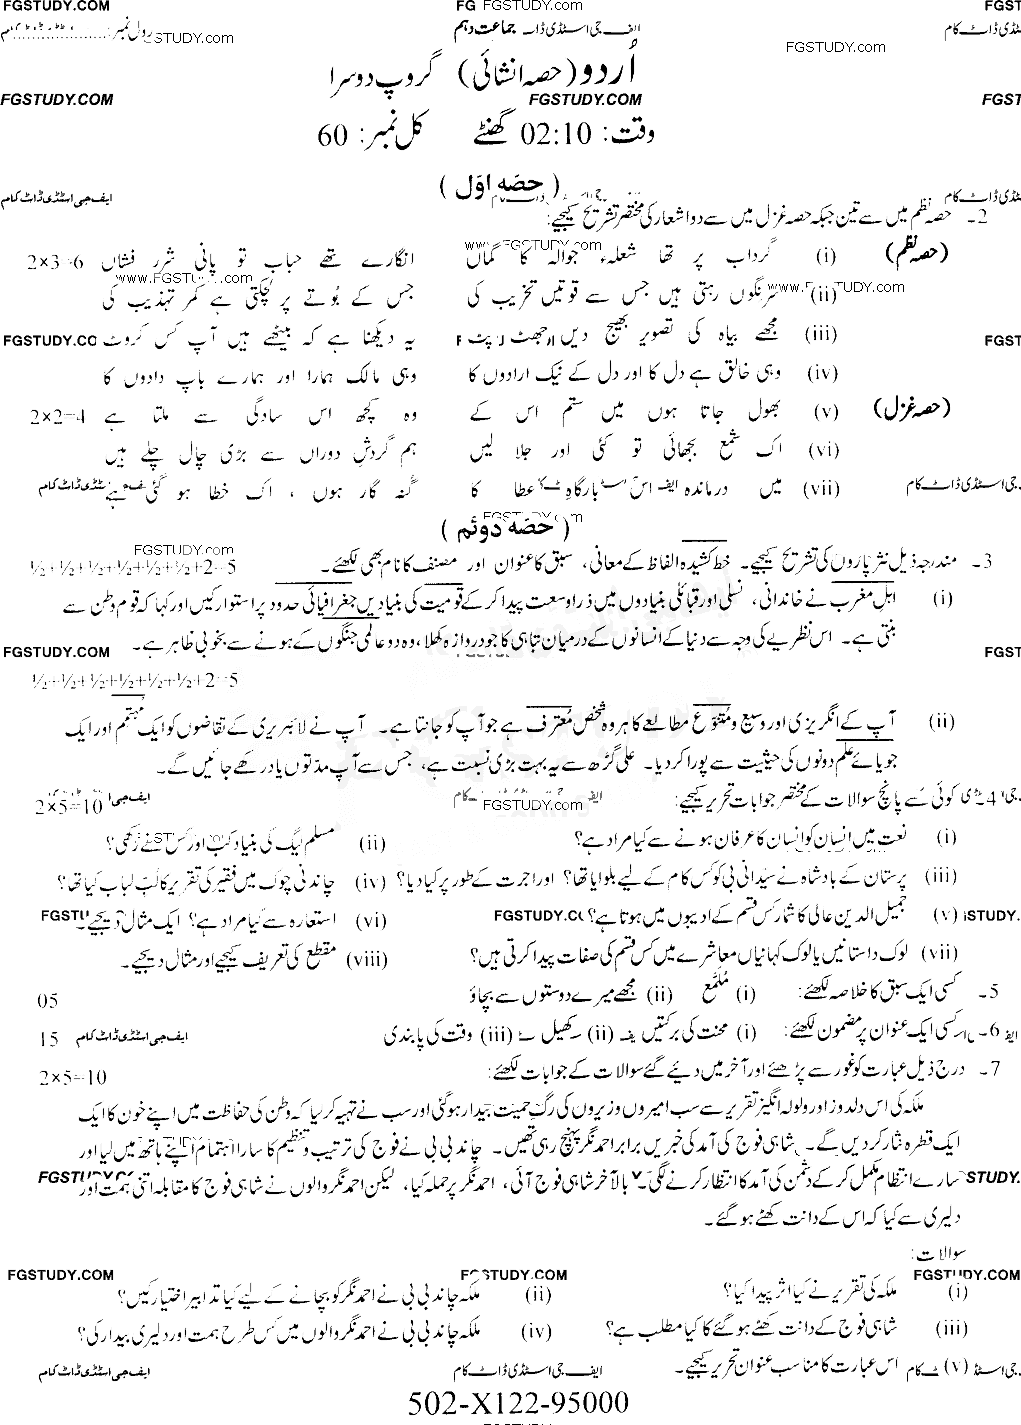 FGSTUDY.COM FG FGSTUDY.com FGST
ایف جی اسٹڈی ڈاٹ جماعت دہم رول نمبر: FGSTUDY.com
FGSTUDY.com
اُردو (حصہ انشائی) گروپ دوسرا
FGSTUDY.COM FGSTUDY.COM FGST
وقت: 02:10 گھنٹے کل نمبر: 60
( حصّہ اوّل )
ایف جی اسٹڈی ڈاٹ کام
2۔ حصہ نظم میں سے تین جبکہ حصہ غزل میں سے دو اشعار کی مختصر تشریح کیجیے:
www.FGSTUDY.com
(حصہ نظم) (i) گرداب پر تھا شعلہء جوالہ کا گماں انگارے تھے حباب تو پانی شرر فشاں 2×3=6
www.FGSTUDY.com
(ii) سرنگوں رہتی ہیں جس سے قوتیں تخریب کی جس کے بُوتے پر لچکتی ہے کمر تہذیب کی
www.FGSTUDY.com
(iii) مجھے بیاہ کی تصویر بھیج دیں جھٹ پٹ یہ دیکھنا ہے کہ بیٹھے ہیں آپ کس کروٹ
FGSTUDY.CO FGST
(iv) وہی خالق ہے دل کا اور دل کے نیک ارادوں کا وہی مالک ہمارا اور ہمارے باپ دادوں کا
(حصہ غزل) (v) بھول جاتا ہوں میں ستم اس کے وہ کچھ اس سادگی سے ملتا ہے 2×2=4
(vi) اک شمع بجھائی تو کئی اور جلا لیں ہم گردشِ دوراں سے بڑی چال چلے ہیں
(vii) میں درماندہ اس بارگاہِ عطا کا گنہ گار ہوں ، اک خطا ہو گئی ہے
( حصّہ دوئم )
FGSTUDY.com
3۔ مندرجہ ذیل نثر پاروں کی تشریح کیجیے۔ خط کشیدہ الفاظ کے معانی، سبق کا عنوان اور مصنف کا نام بھی لکھئے۔ ½+½+½+½+½+½+2=5
(i) اہلِ مغرب نے خاندانی، نسلی اور قبائلی بنیادوں میں ذرا وسعت پیدا کر کے قومیت کی بنیادیں جغرافیائی حدود پر استوار کیں اور کہا کہ قوم وطن سے
بنتی ہے۔ اس نظریے کی وجہ سے دنیا کے انسانوں کے درمیان تباہی کا جو دروازہ کھلا، وہ دو عالمی جنگوں کے ہونے سے بخوبی ظاہر ہے۔
FGSTUDY.COM FGST
½+½+½+½+½+½+2=5
(ii) آپ کے انگریزی اور وسیع و متنوّع مطالعے کا ہر وہ شخص معترف ہے جو آپ کو جانتا ہے۔ آپ نے لائبریری کے تقاضوں کو ایک مہتمم اور ایک
جویائے علم دونوں کی حیثیت سے پورا کر دیا۔ علی گڑھ سے یہ بہت بڑی نسبت ہے، جس سے آپ مدّتوں یاد رکھے جائیں گے۔
4۔ کوئی سے پانچ سوالات کے مختصر جوابات تحریر کیجیے: 2×5=10
FGSTUDY.com
(i) نعت میں انسان کو انسان کا عرفان ہونے سے کیا مراد ہے؟ (ii) مسلم لیگ کی بنیاد کب اور کس نے رکھی؟
(iii) پرستان کے بادشاہ نے سیّدانی بی کو کس کام کے لیے بلوایا تھا؟ اور اجرت کے طور پر کیا دیا؟ (iv) چاندنی چوک میں فقیر کی تقریر کا لُبِ لباب کیا تھا؟
(v) جمیل الدین عالی کا شمار کس قسم کے ادیبوں میں ہوتا ہے؟ (vi) استعارہ سے کیا مراد ہے؟ ایک مثال دیجیے۔
(vii) لوک داستانیں یا لوک کہانیاں معاشرے میں کس قسم کی صفات پیدا کرتی ہیں؟ (viii) مقطع کی تعریف کیجیے اور مثال دیجیے۔
5۔ کسی ایک سبق کا خلاصہ لکھئے: (i) مُلمّع (ii) مجھے میرے دوستوں سے بچاؤ 05
6۔ کسی ایک عنوان پر مضمون لکھئے: (i) محنت کی برکتیں (ii) کھیل (iii) وقت کی پابندی ایف جی اسٹڈی ڈاٹ کام 15
7۔ درج ذیل عبارت کو غور سے پڑھئے اور آخر میں دیئے گئے سوالات کے جوابات لکھئے: 2×5=10
ملکہ کی اس دلدوز اور ولولہ انگیز تقریر سے سب امیروں وزیروں کی رگِ حمیت بیدار ہو گئی اور سب نے تہیہ کر لیا کہ وطن کی حفاظت میں اپنے خون کا ایک
ایک قطرہ نثار کر دیں گے۔ شاہی فوج کی آمد کی خبریں برابر احمد نگر پہنچ رہی تھیں۔ چاند بی بی نے فوج کی ترتیب و تنظیم کا سارا اہتمام اپنے ہاتھ میں لیا اور
سارے انتظام مکمل کر کے دشمن کی آمد کا انتظار کرنے لگی۔ بالآخر شاہی فوج آئی، احمد نگر پر حملہ کیا، لیکن احمد نگر والوں نے شاہی فوج کا مقابلہ اتنی ہمت اور
دلیری سے کیا کہ اس کے دانت کھٹے ہو گئے۔
سوالات:
FGSTUDY.COM FGSTUDY.COM FGSTUDY.COM
(i) ملکہ کی تقریر نے کیا اثر پیدا کیا؟ (ii) ملکہ چاند بی بی نے احمد نگر کو بچانے کے لیے کیا تدابیر اختیار کیں؟
(iii) شاہی فوج کے دانت کھٹے ہو گئے کا کیا مطلب ہے؟ (iv) ملکہ چاند بی بی نے احمد نگر والوں میں کس طرح ہمت اور دلیری بیدار کی؟
(v) اس عبارت کا مناسب عنوان تحریر کیجیے۔ ایف جی اسٹڈی ڈاٹ کام ایف جی اسٹڈی ڈاٹ کام
502-X122-95000